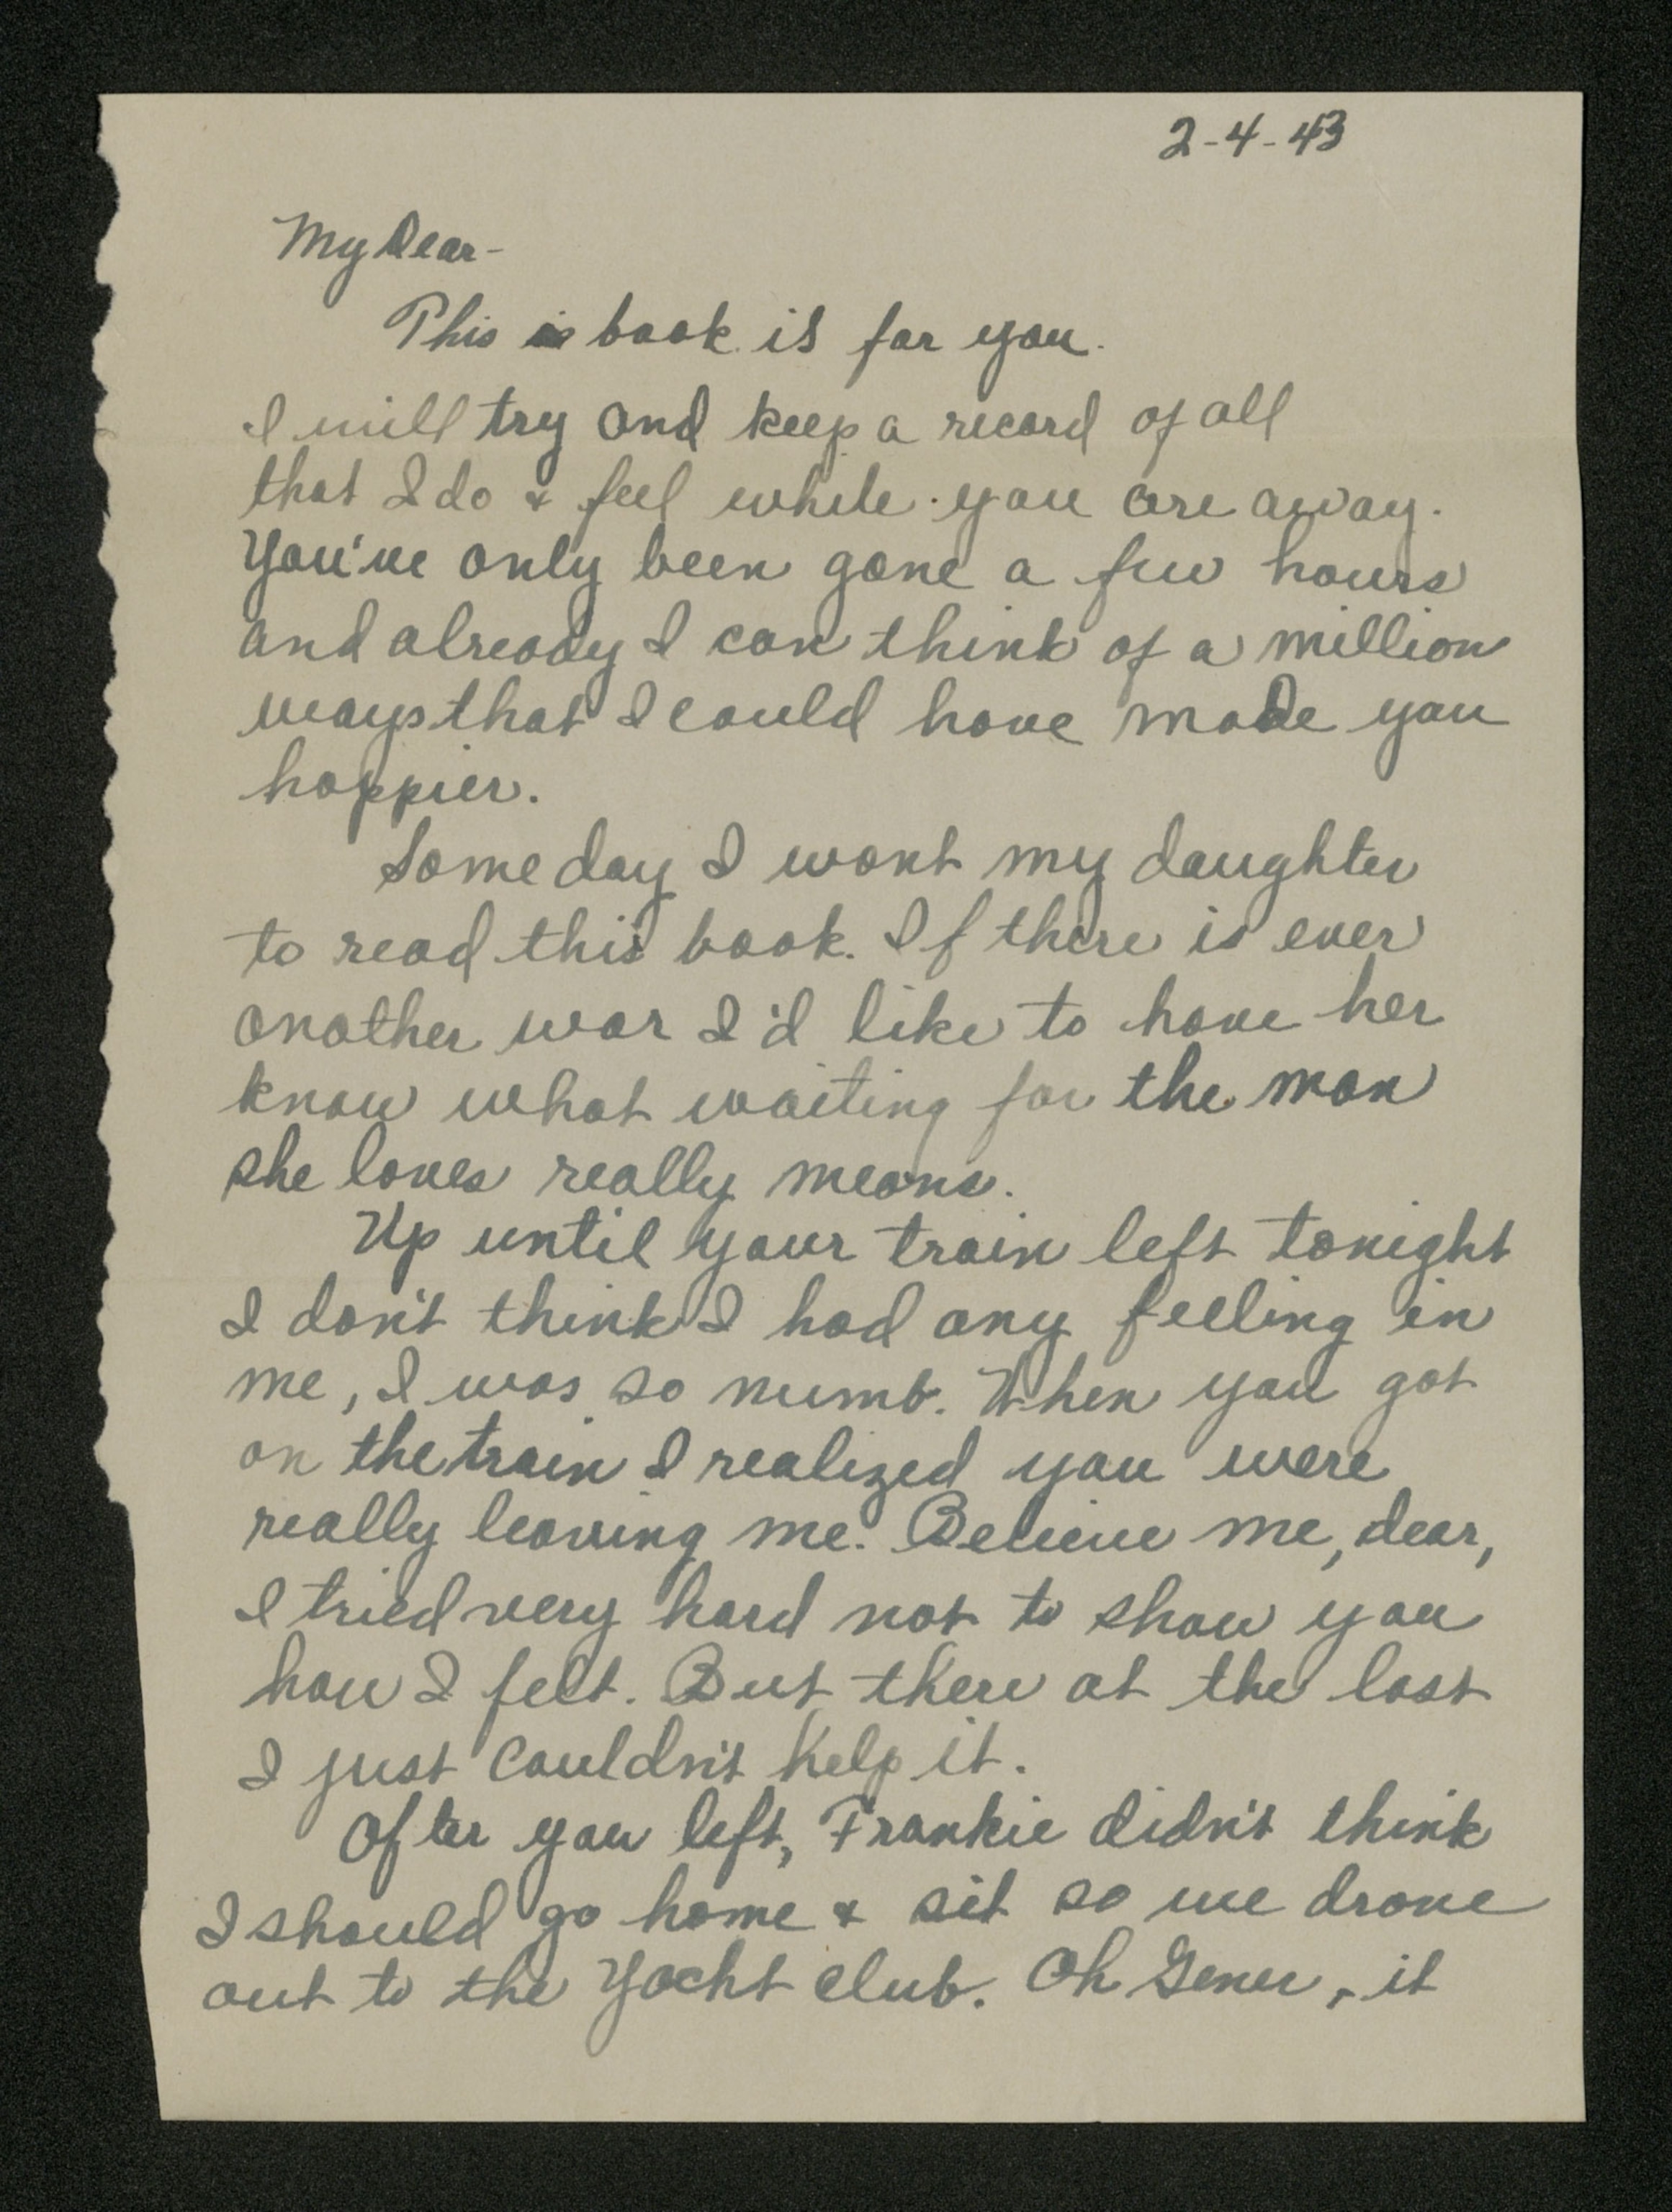 2-4-43
My Dear-
This is book is for you.
I will try and keep a record of all
that I do & feel while you are away.
You've only been gone a few hours
and already I can think of a million
ways that I could have made you
happier.
Some day I want my daughter
to read this book. If there is ever
another war I'd like to have her
know what waiting for the man
she loves really means.
Up until your train left tonight
I don't think I had any feeling in
me, I was so numb. When you got
on the train I realized you were
really leaving me. Believe me, dear,
I tried very hard not to show you
how I felt. But there at the last
I just couldn't help it.
After you left, Frankie didn't think
I should go home & sit so we drove
out to the Yacht Club. Oh Gener, it